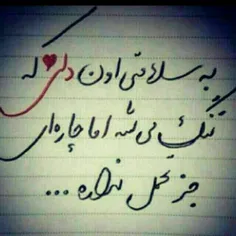 به سلامتی اون دلی که
تنگ می شه اما چاره ای
جز تحمل نداره ...